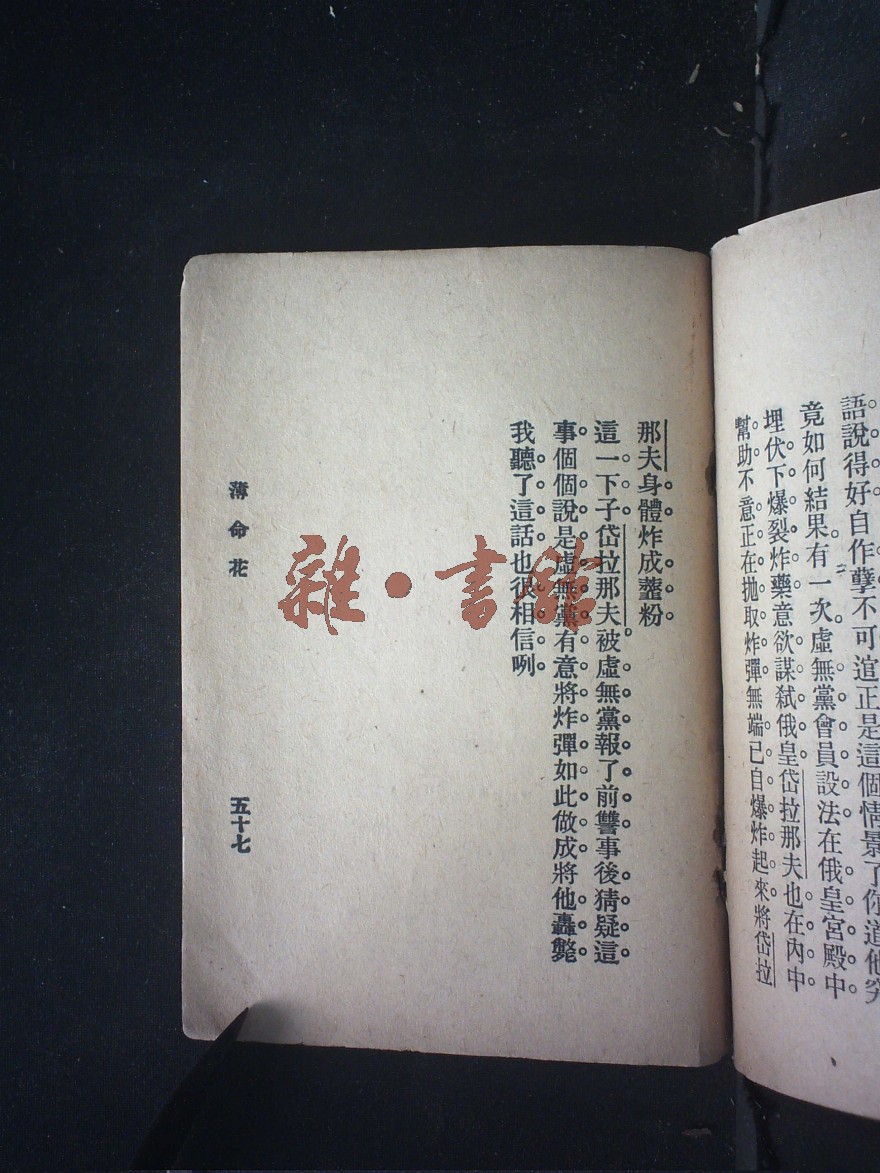 語說得好自作孽不可逭正是這個情景了你道他究
竟如何結果有一次虛無黨會員設法在俄皇宮殿中
埋伏下爆裂炸藥意欲謀弒俄皇岱拉那夫也在內中
幫助不意正在抛取炸彈無端已自爆炸起來將岱拉
那夫身體炸成虀粉
這一下子岱拉那夫被虛無黨報了前讐事後猜疑這
事個個說是虛無黨有意將炸彈如此做成將他轟斃
我聽了這話也很相信咧
薄命花
五十七
雜·書館